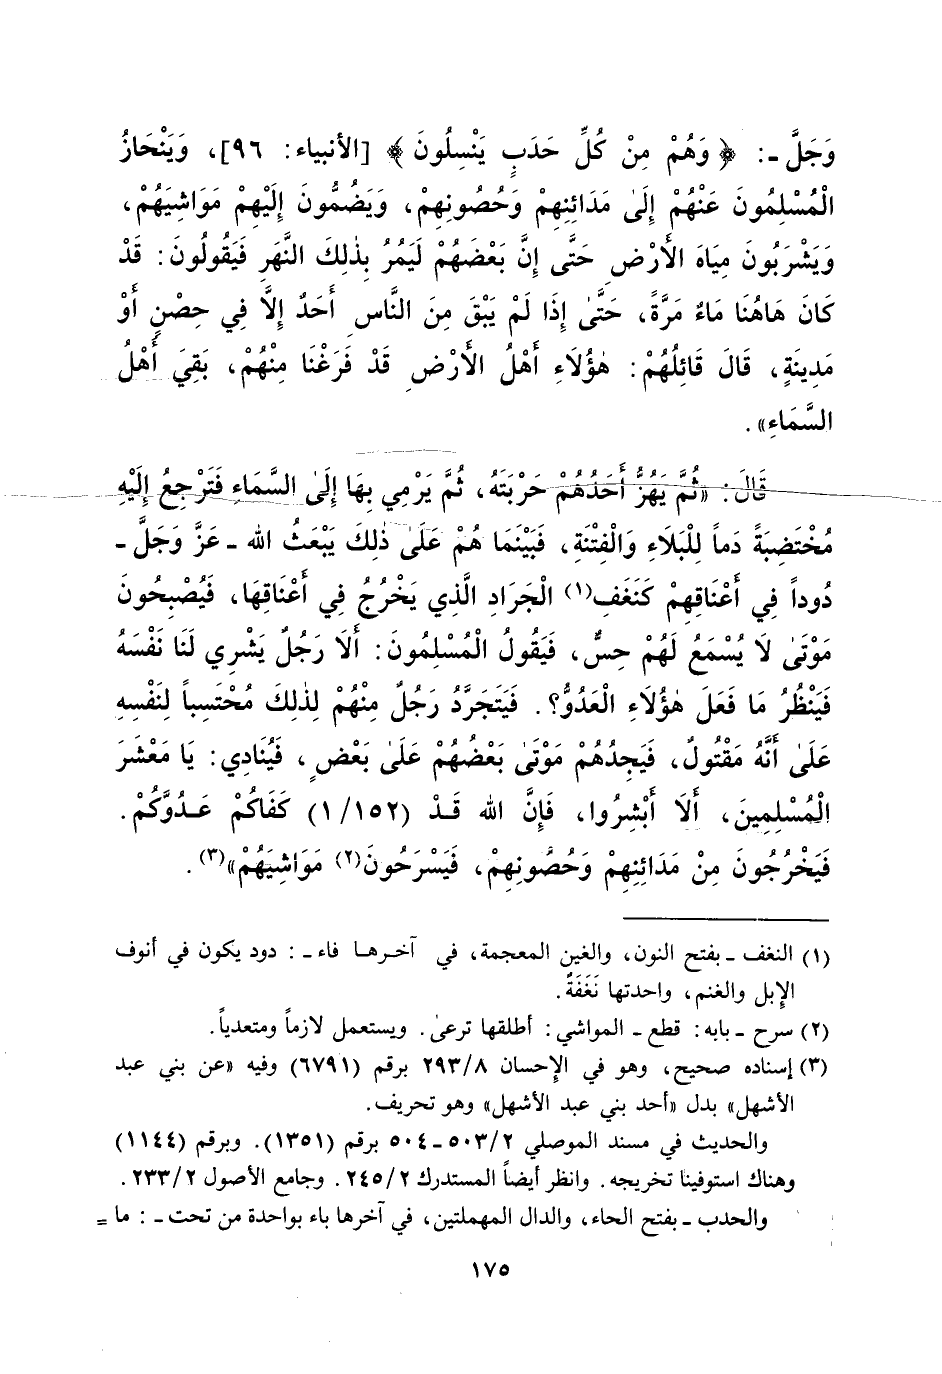 وَجَلَّ ـ: ﴿ وَهُمْ مِنْ كُلِّ حَدَبٍ يَنْسِلُونَ ﴾ [الأنبياء: ٩٦]، وَيَنْحَازُ
الْمُسْلِمُونَ عَنْهُمْ إِلَىٰ مَدَائِنِهِمْ وَحُصُونِهِمْ، وَيَضُمُّونَ إِلَيْهِمْ مَوَاشِيَهُمْ،
وَيَشْرَبُونَ مِيَاهَ الأَرْضِ حَتَّى إِنَّ بَعْضَهُمْ لَيَمُرُ بِذٰلِكَ النَّهَرِ فَيَقُولُونَ: قَدْ
كَانَ هَاهُنَا مَاءٌ مَرَّةً، حَتَّىٰ إِذَا لَمْ يَبْقَ مِنَ النَّاسِ أَحَدٌ إِلَّا فِي حِصْنٍ أَوْ
مَدِينَةٍ، قَالَ قَائِلُهُمْ: هٰؤُلَاءِ أَهْلُ الأَرْضِ قَدْ فَرَغْنَا مِنْهُمْ، بَقِيَ أَهْلُ
السَّمَاءِ».
قَالَ: «ثُمَّ يَهُزُّ أَحَدُهُمْ حَرْبَتَهُ، ثُمَّ يَرْمِي بِهَا إِلَىٰ السَّمَاءِ فَتَرْجِعُ إِلَيْهِ
مُخْتَضِبَةً دَماً لِلْبَلَاءِ وَالْفِتْنَةِ، فَبَيْنَمَا هُمْ عَلَىٰ ذٰلِكَ يَبْعَثُ الله ـ عَزَّ وَجَلَّ ـ
دُوداً فِي أَعْنَاقِهِمْ كَنَغَفِ(١) الْجَرَادِ الَّذِي يَخْرُجُ فِي أَعْنَاقِهَا، فَيُصْبِحُونَ
مَوْتَىٰ لَا يُسْمَعُ لَهُمْ حِسٌّ، فَيَقُولُ الْمُسْلِمُونَ: أَلَا رَجُلٌ يَشْرِي لَنَا نَفْسَهُ
فَيَنْظُرُ مَا فَعَلَ هٰؤُلَاءِ الْعَدُوُّ؟. فَيَتَجَرَّدُ رَجُلٌ مِنْهُمْ لِذٰلِكَ مُحْتَسِباً لِنَفْسِهِ
عَلَىٰ أَنَّهُ مَقْتُولٌ، فَيَجِدُهُمْ مَوْتَىٰ بَعْضُهُمْ عَلَىٰ بَعْضٍ، فَيُنَادِي: يَا مَعْشَرَ
الْمُسْلِمِينَ، أَلَا أَبْشِرُوا، فَإِنَّ الله قَـدْ (١/١٥٢) كَفَاكُمْ عَـدُوَّكُمْ.
فَيَخْرُجُونَ مِنْ مَدَائِنِهِمْ وَحُصُونِهِمْ، فَيَسْرَحُونَ(٢) مَوَاشِيَهُمْ»(٣).
(١) النغف ـ بفتح النون، والغين المعجمة، في آخـرهـا فاء ـ: دود يكون في أنوف
الإبل والغنم، واحدتها نَغَفَةٌ.
(٢) سرح ـ بابه: قطع ـ المواشي: أطلقها ترعىٰ. ويستعمل لازماً ومتعدياً.
(٣) إسناده صحيح، وهو في الإحسان ٢٩٣/٨ برقم (٦٧٩١) وفيه «عن بني عبد
الأشهل» بدل «أحد بني عبد الأشهل» وهو تحريف.
والحديث في مسند الموصلي ٥٠٣/٢ ـ ٥٠٤ برقم (١٣٥١). وبرقم (١١٤٤)
وهناك استوفينا تخريجه. وانظر أيضاً المستدرك ٢٤٥/٢. وجامع الأصول ٢٣٣/٢.
والحدب ـ بفتح الحاء، والدال المهملتين، في آخرها باء بواحدة من تحت ـ: ما =
١٧٥